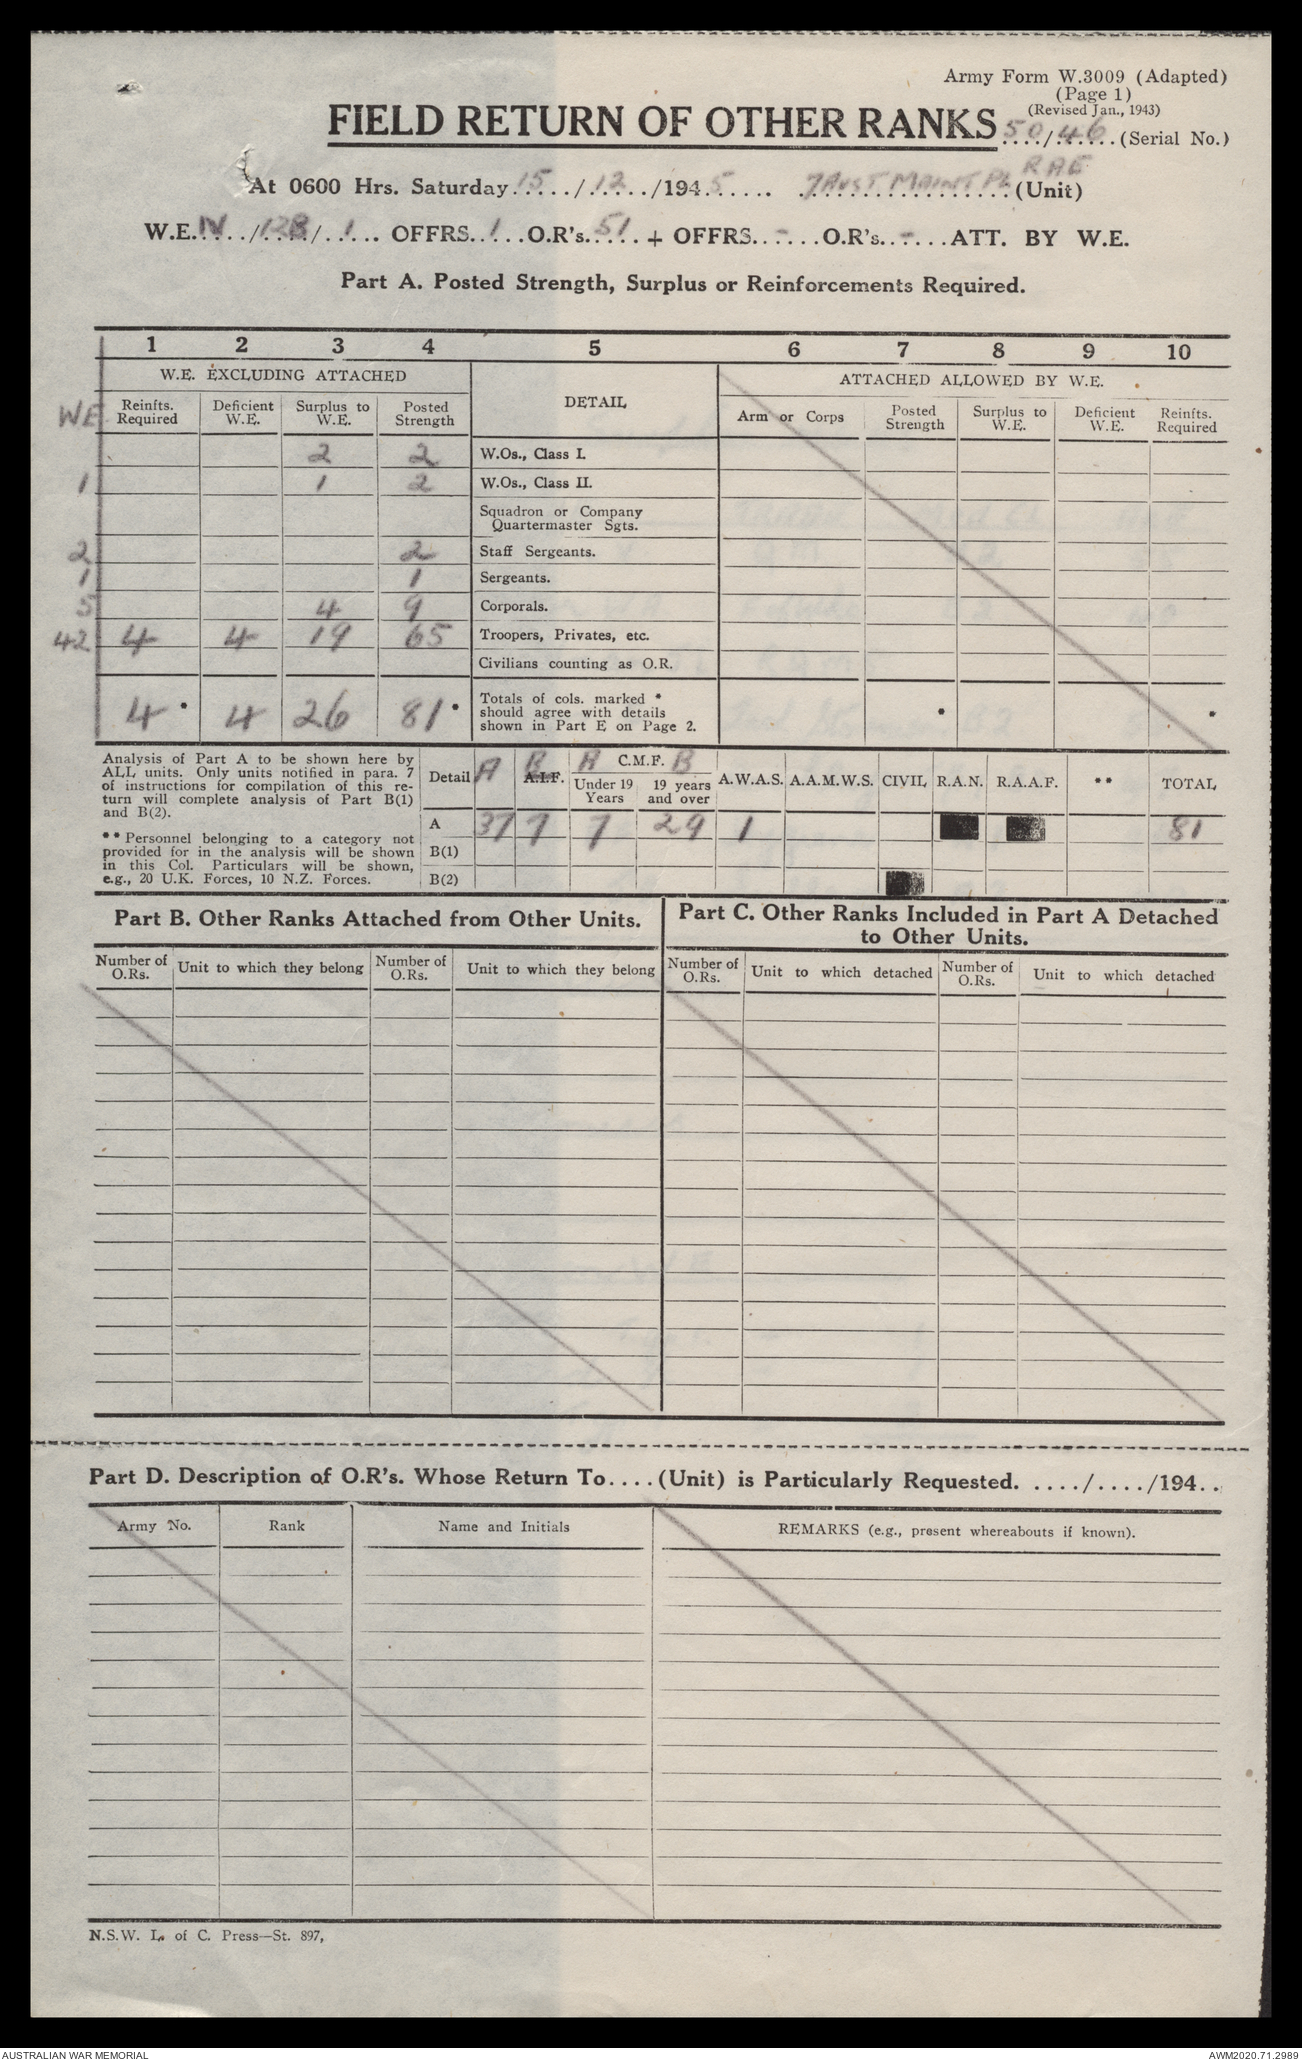 Army Form W.3009 (Adapted)
(Page 1)
(Revised Jan., 1943)
FIELD RETURN OF OTHER RANKS 50/46 (Serial No.)
At 0600 Hrs. Saturday 15/12/1945 7 AUST MAINT PL RAE (Unit)
W.E. IV/12B/1 OFFRS. 1 O.R's. 51 + OFFRS. - O.R's. - ATT. BY W.E.
Part A. Posted Strength, Surplus or Reinforcements Required.
1 2 3 4 5 6 7 8 9 10
W.E. EXCLUDING ATTACHED DETAIL ATTACHED ALLOWED BY W.E.
WE Reinfts. Required Deficient W.E. Surplus to W.E. Posted Strength Arm or Corps Posted Strength Surplus to W.E. Deficient W.E. Reinfts. Required
2 2 W.Os., Class I.
1 1 2 W.Os., Class II.
Squadron or Company
Quartermaster Sgts.
2 2 Staff Sergeants.
1 1 Sergeants.
5 4 9 Corporals.
42 4 4 19 65 Troopers, Privates, etc.
Civilians counting as O.R.
4 * 4 26 81 * Totals of cols. marked * should agree with details shown in Part E on Page 2. * *
Analysis of Part A to be shown here by
ALL units. Only units notified in para. 7
of instructions for compilation of this re-
turn will complete analysis of Part B(1)
and B(2).
** Personnel belonging to a category not
provided for in the analysis will be shown
in this Col. Particulars will be shown,
e.g., 20 U.K. Forces, 10 N.Z. Forces.
Detail A B A.I.F. A C.M.F. B Under 19 Years 19 years and over A.W.A.S. A.A.M.W.S. CIVIL R.A.N. R.A.A.F. ** TOTAL
A 37 7 7 29 1 81
B(1)
B(2)
Part B. Other Ranks Attached from Other Units.
Part C. Other Ranks Included in Part A Detached
to Other Units.
Number of O.Rs. Unit to which they belong Number of O.Rs. Unit to which they belong Number of O.Rs. Unit to which detached Number of O.Rs. Unit to which detached
Part D. Description of O.R's. Whose Return To....(Unit) is Particularly Requested. ..../..../194..
Army No. Rank Name and Initials REMARKS (e.g., present whereabouts if known).
N.S.W. L. of C. Press—St. 897,
AUSTRALIAN WAR MEMORIAL AWM2020.71.2989